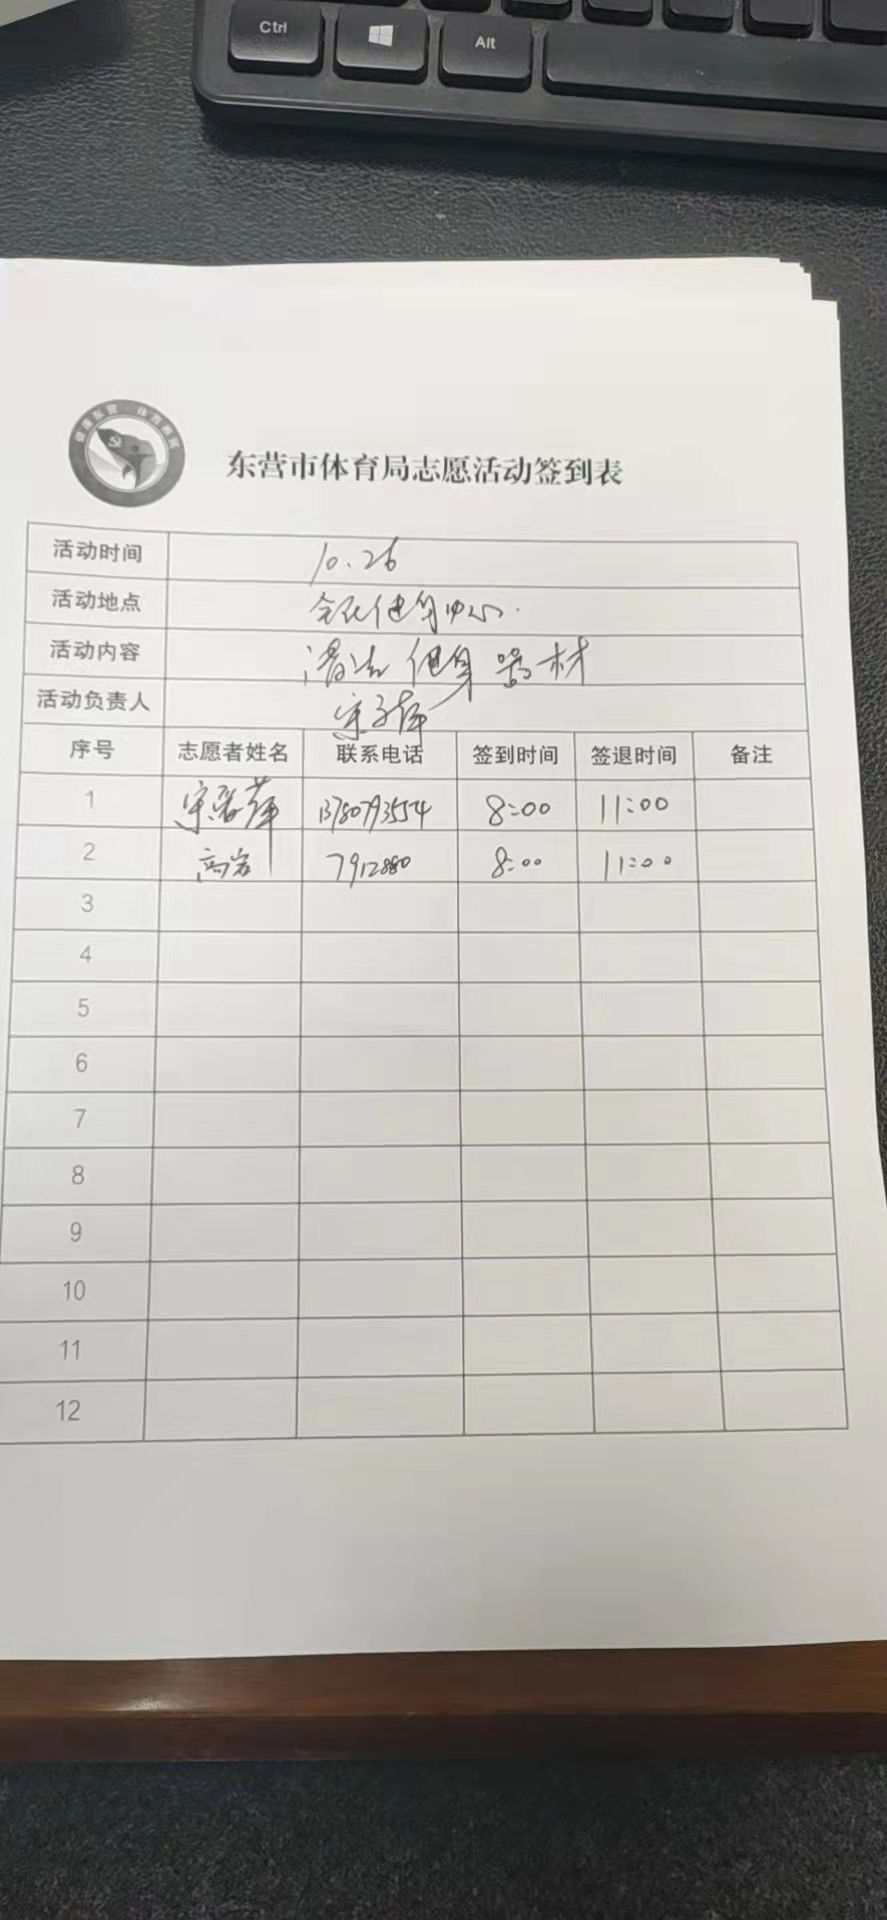 Ctrl
Alt
东营市体育局志愿活动签到表
活动时间 10.26
活动地点 全民健身中心.
活动内容 清洁 健身 器材
活动负责人
序号 志愿者姓名 联系电话 签到时间 签退时间 备注
1 8:00 11:00
2 高岩 7912880 8:00 11:00
3
4
5
6
7
8
9
10
11
12